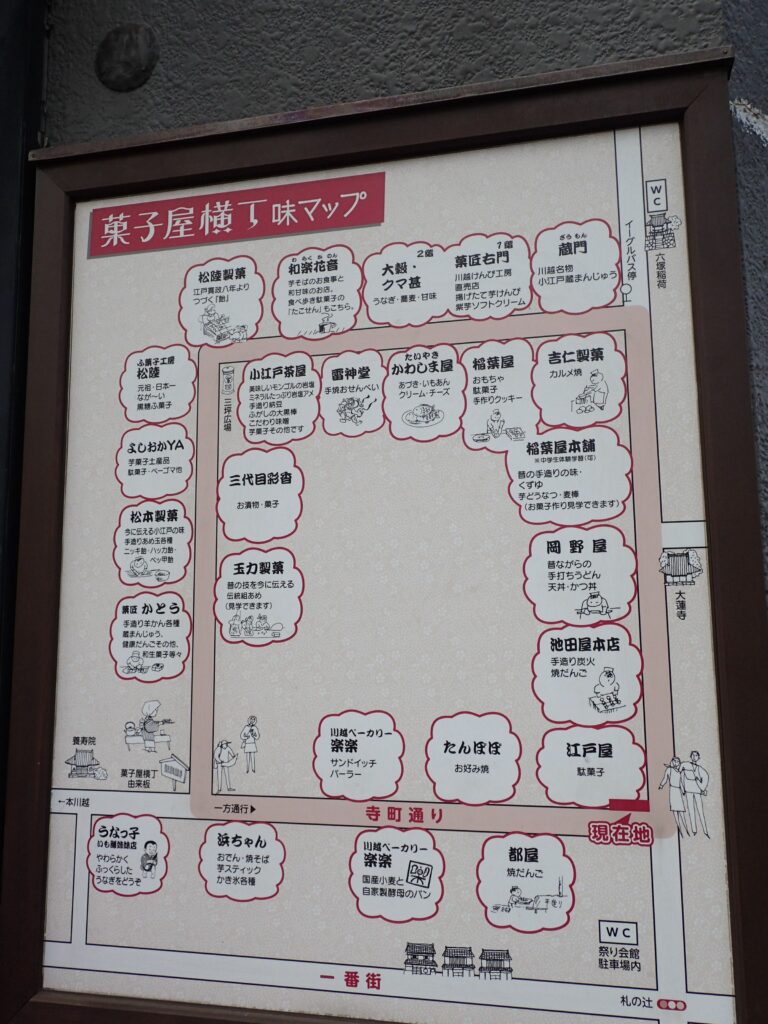 菓子屋横丁味マップ
WC
六塚稲荷
イーグルバス停
松陸製菓
江戸寛政八年より
つづく「飴」
わらくかのん
和楽花音
芋そばのお食事と
和甘味のお店。
食べ歩き駄菓子の
「たこせん」もこちら。
2階
大穀・
クマ甚
うなぎ・蕎麦・甘味
1階
菓匠右門
川越けんぴ工房
直売店
揚げたて芋けんぴ
紫芋ソフトクリーム
くらもん
蔵門
川越名物
小江戸蔵まんじゅう
ふ菓子工房
松陸
元祖・日本一
なが〜い
黒糖ふ菓子
三坪広場
小江戸茶屋
美味しいモンゴルの岩塩
ミネラルたっぷり岩塩アメ
手造り納豆
ふがしの大黒棒
こだわり味噌
芋菓子その他です
雷神堂
手焼おせんべい
たいやき
かわしま屋
あづき・いもあん
クリーム・チーズ
稲葉屋
おもちゃ
駄菓子
手作りクッキー
吉仁製菓
カルメ焼
よしおかYA
芋菓子土産品
駄菓子・ベーゴマ他
三代目彩香
お漬物・菓子
稲葉屋本舗
※中学生体験学習(可)
昔の手造りの味・
くずゆ
芋どうなつ・麦棒
(お菓子作り見学できます)
松本製菓
今に伝える小江戸の味
手造りあめ玉各種
ニッキ飴・ハッカ飴・
べッ甲飴
玉力製菓
昔の技を今に伝える
伝統組あめ
(見学できます)
岡野屋
昔ながらの
手打ちうどん
天丼・かつ丼
大蓮寺
菓匠 かとう
手造り羊かん各種
蔵まんじゅう、
健康だんごその他、
和生菓子等々
池田屋本店
手造り炭火
焼だんご
養寿院
菓子屋横丁
由来板
川越ベーカリー
楽楽
サンドイッチ
パーラー
たんぽぽ
お好み焼
江戸屋
駄菓子
←本川越
一方通行▶
寺町通り
現在地
うなっ子
いも膳姉妹店
やわらかく
ふっくらした
うなぎをどうぞ
浜ちゃん
おでん・焼そば
芋スティック
かき氷各種
川越ベーカリー
楽楽
国産小麦と
自家製酵母のパン
都屋
焼だんご
手造り
WC
祭り会館
駐車場内
一番街
札の辻